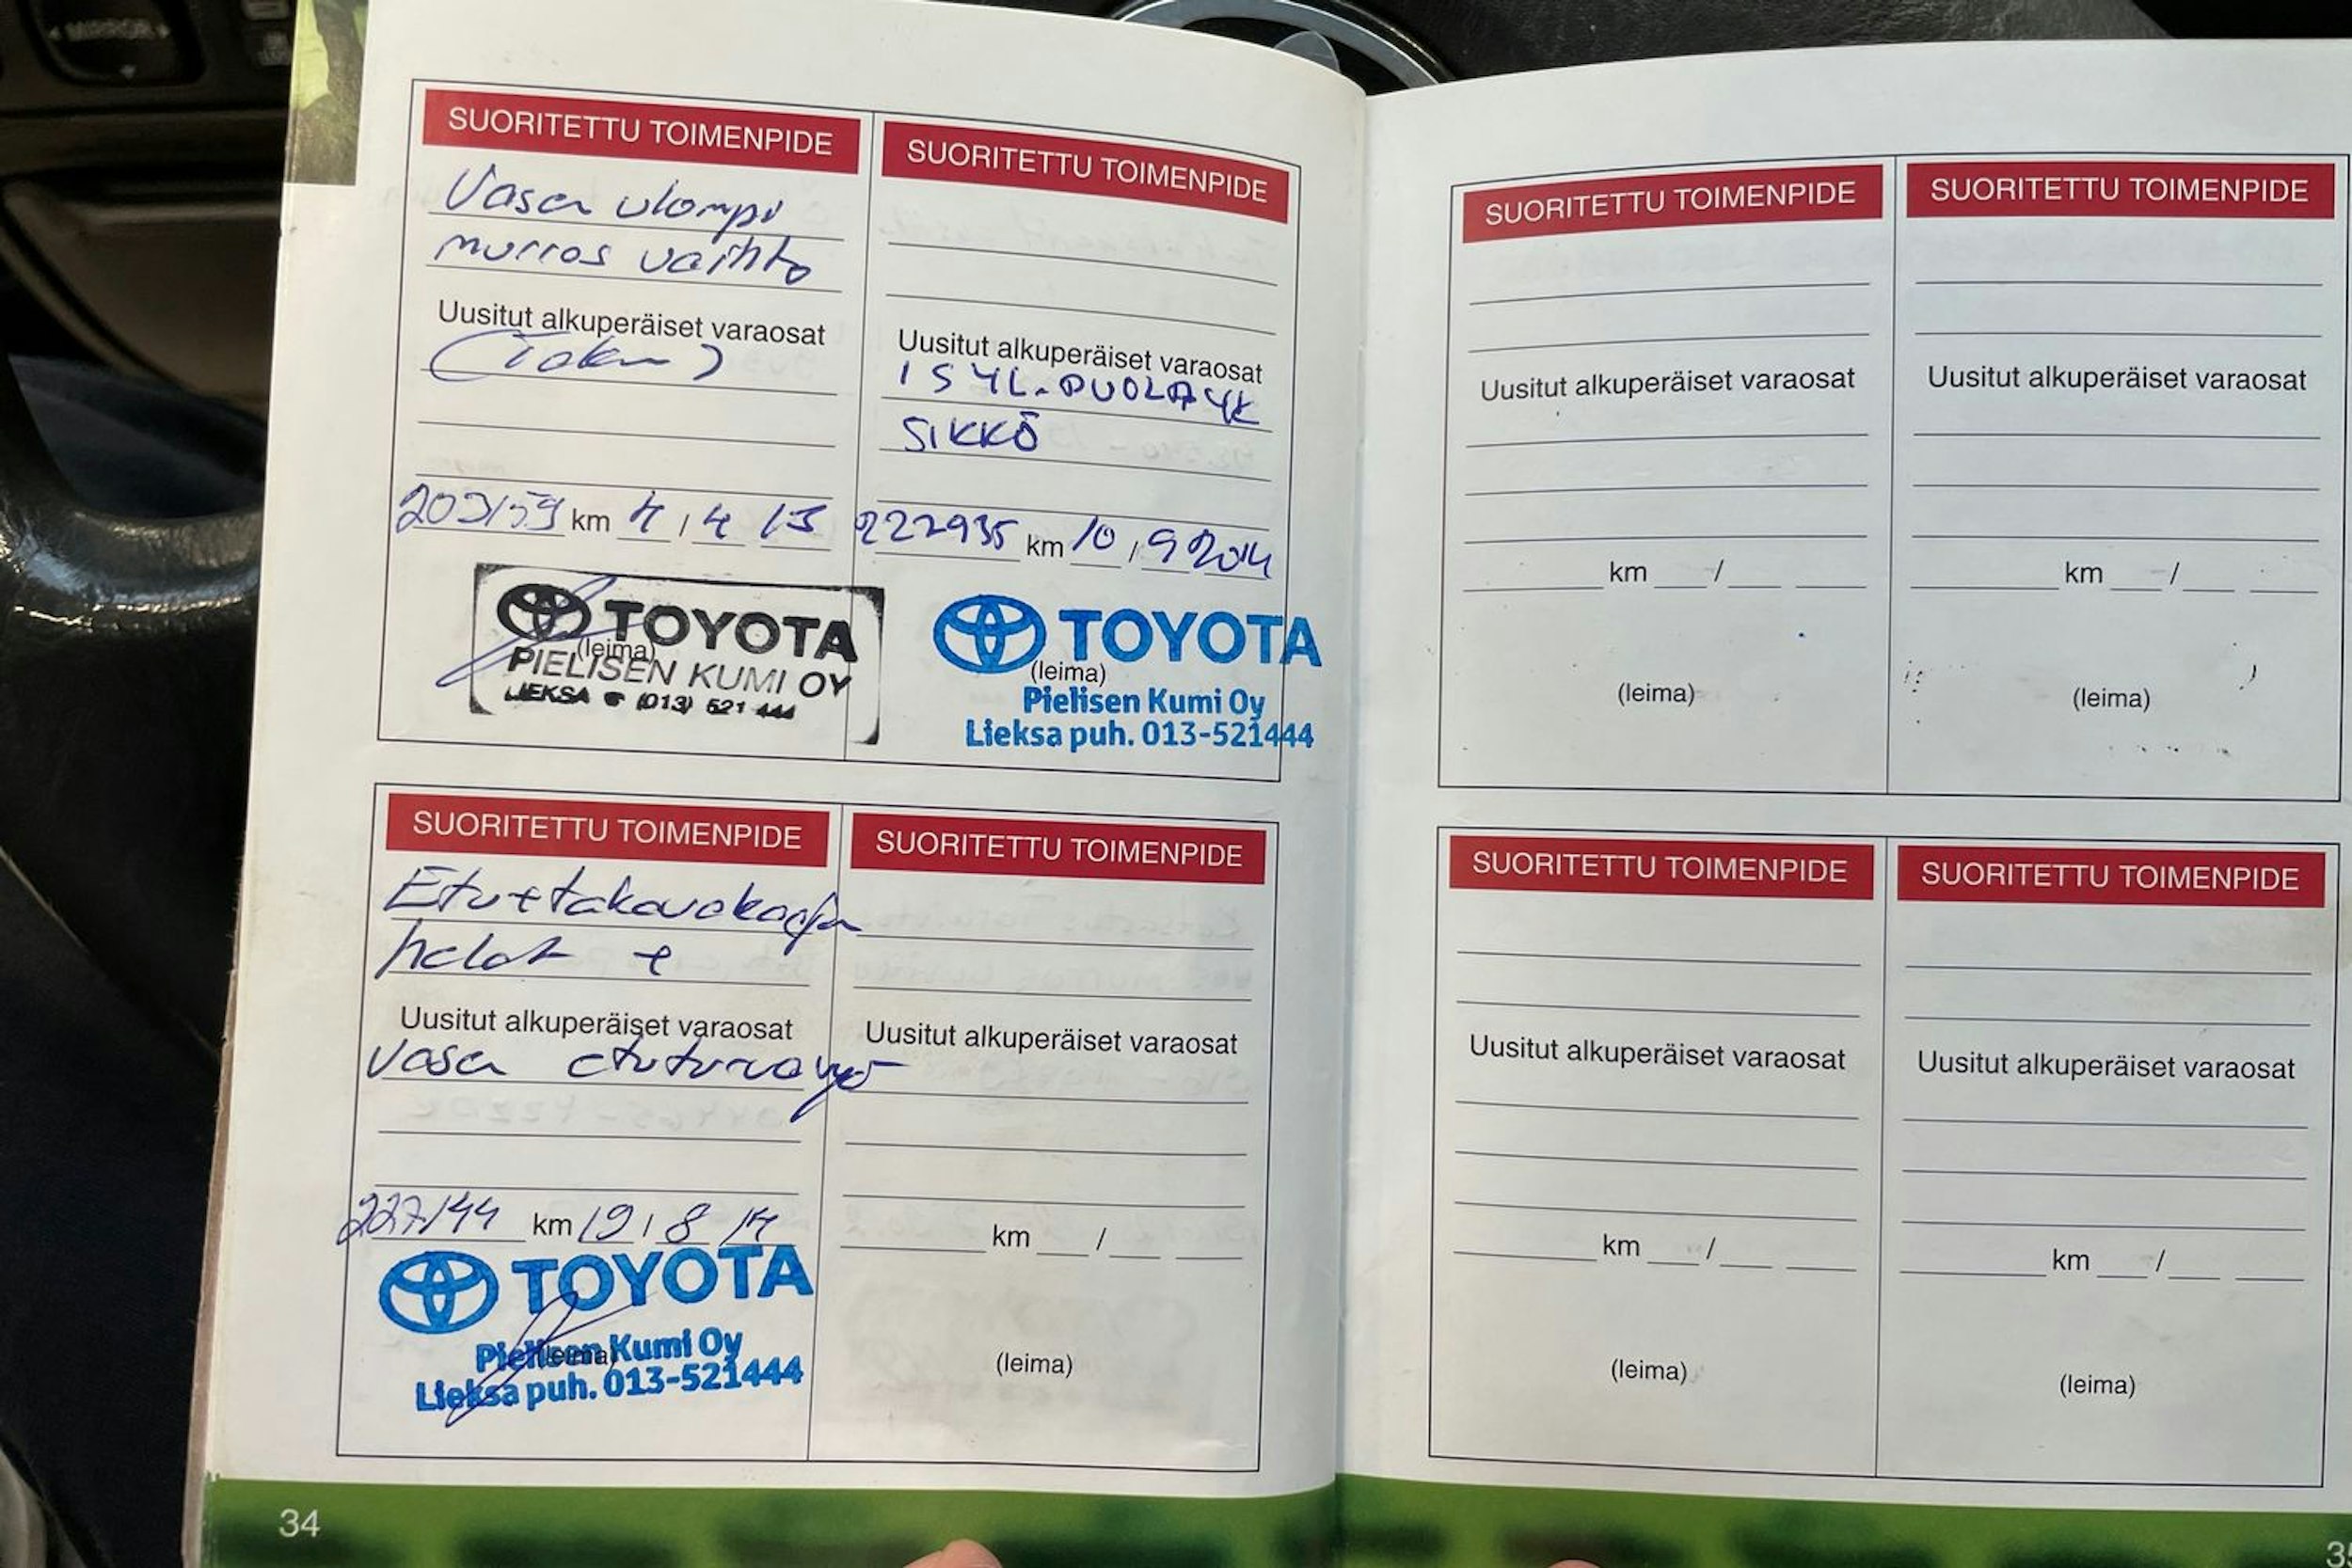 MIRROR
SUORITETTU TOIMENPIDE
Vasen ulompi
murros vaihto
Uusitut alkuperäiset varaosat
(Taka)
km 4 / 4 13
TOYOTA
(leima)
PIELISEN KUMI OY
LIEKSA ☎ (013) 521 444
SUORITETTU TOIMENPIDE
Uusitut alkuperäiset varaosat
SIKKÖ
222935 km 10 / 9 2014
TOYOTA
(leima)
Pielisen Kumi Oy
Lieksa puh. 013-521444
SUORITETTU TOIMENPIDE
Etu+takavakaajan
helat +
Uusitut alkuperäiset varaosat
vasen etuturvavyö
km 19 / 8 14
TOYOTA
Pielisen Kumi Oy
(leima)
Lieksa puh. 013-521444
SUORITETTU TOIMENPIDE
Uusitut alkuperäiset varaosat
km /
(leima)
34
SUORITETTU TOIMENPIDE
Uusitut alkuperäiset varaosat
km /
(leima)
SUORITETTU TOIMENPIDE
Uusitut alkuperäiset varaosat
km /
(leima)
SUORITETTU TOIMENPIDE
Uusitut alkuperäiset varaosat
km /
(leima)
SUORITETTU TOIMENPIDE
Uusitut alkuperäiset varaosat
km /
(leima)